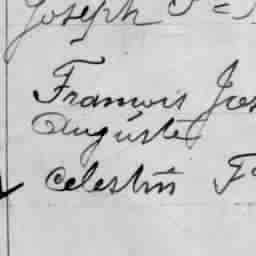 Joseph
Francois Jos
Auguste
Celestin F